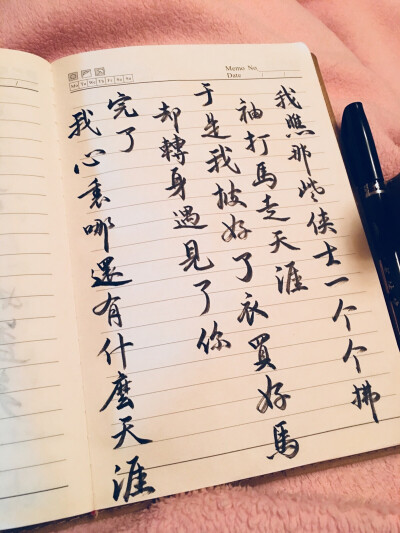 Memo No.
Date / /
Mo Tu We Th Fr Sa Su
我瞧那些侠士一个个拂
袖打馬走天涯
于是我披好了衣買好馬
却轉身遇見了你
完了
我心裏哪還有什麼天涯